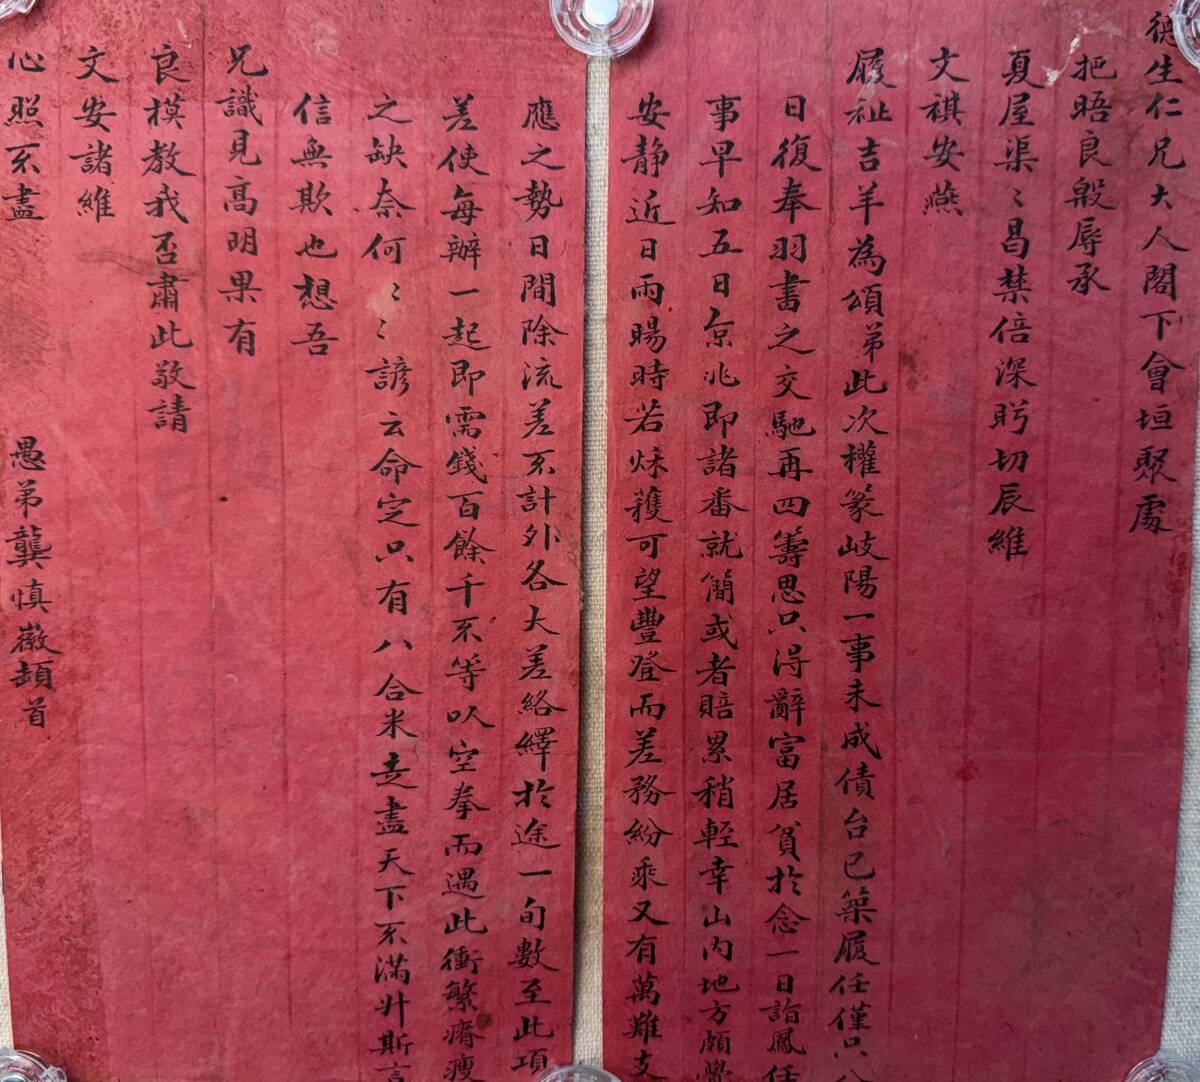 德生仁兄大人閣下會垣聚處
把晤良殷辱承
夏屋渠〻曷禁倍深眄切辰維
文祺安燕
履祉吉羊為頌弟此次權篆岐陽一事未成債台已築履任僅只八
日復奉羽書之交馳再四籌思只得辭富居貧於念一日詣鳳任
事早知五日京兆即諸番就簡或者賠累稍輕幸山內地方頗覺
安靜近日雨暘時若秌穫可望豐登而差務紛乘又有萬難支
應之勢日間除流差不計外各大差絡繹於途一旬數至此項
差使每辦一起即需錢百餘千不等以空拳而遇此衝繁瘠瘦
之缺奈何〻〻諺云命定只有八合米走盡天下不滿升斯言
信無欺也想吾
兄識見高明果有
良模教我否肅此敬請
文安諸維
心照不盡
愚弟龔慎徽頓首